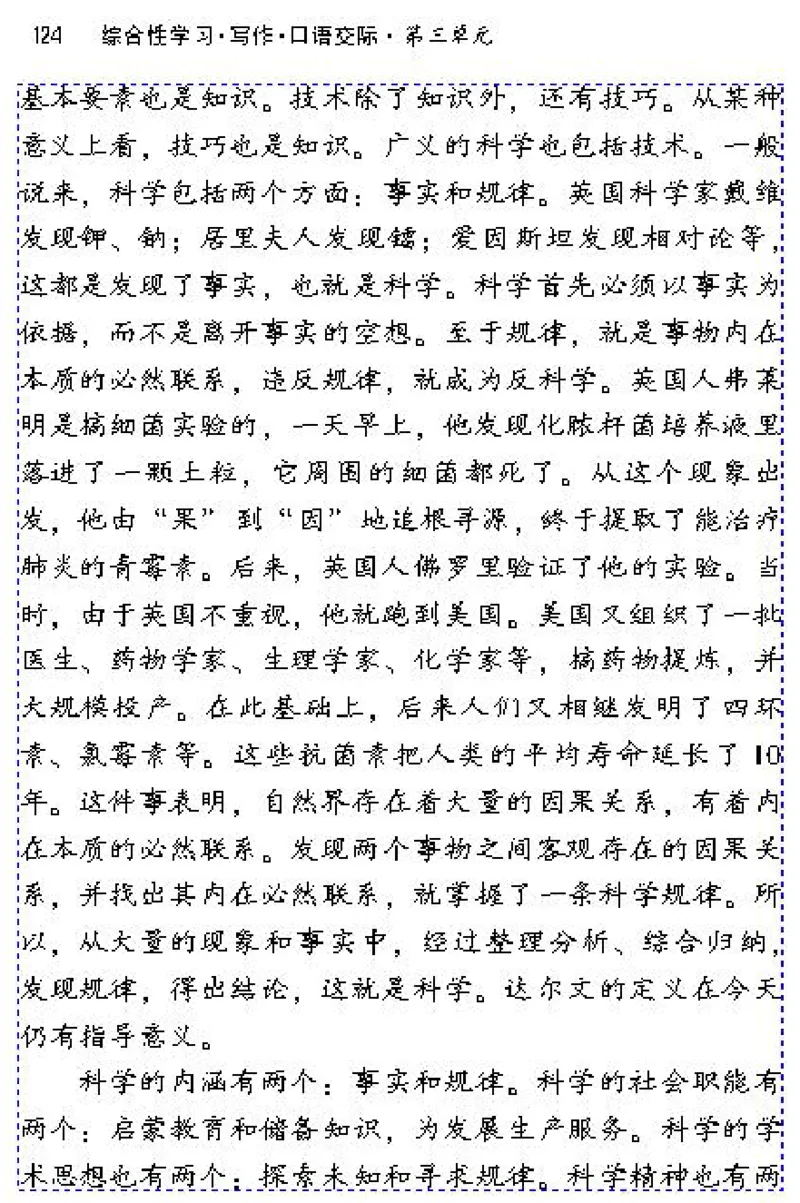 124 综合性学习·写作·口语交际·第三单元
基本要素也是知识。技术除了知识外，还有技巧。从某种
意义上看，技巧也是知识。广义的科学也包括技术。一般
说来，科学包括两个方面：事实和规律。英国科学家戴维
发现钾、钠；居里夫人发现镭；爱因斯坦发现相对论等，
这都是发现了事实，也就是科学。科学首先必须以事实为
依据，而不是离开事实的空想。至于规律，就是事物内在
本质的必然联系，违反规律，就成为反科学。英国人弗莱
明是搞细菌实验的，一天早上，他发现化脓杆菌培养液里
落进了一颗土粒，它周围的细菌都死了。从这个现象出
发，他由“果”到“因”地追根寻源，终于提取了能治疗
肺炎的青霉素。后来，英国人佛罗里验证了他的实验。当
时，由于英国不重视，他就跑到美国。美国又组织了一批
医生、药物学家、生理学家、化学家等，搞药物提炼，并
大规模投产。在此基础上，后来人们又相继发明了四环
素、氯霉素等。这些抗菌素把人类的平均寿命延长了10
年。这件事表明，自然界存在着大量的因果关系，有着内
在本质的必然联系。发现两个事物之间客观存在的因果关
系，并找出其内在必然联系，就掌握了一条科学规律。所
以，从大量的现象和事实中，经过整理分析、综合归纳，
发现规律，得出结论，这就是科学。达尔文的定义在今天
仍有指导意义。
科学的内涵有两个：事实和规律。科学的社会职能有
两个：启蒙教育和储备知识，为发展生产服务。科学的学
术思想也有两个：探索未知和寻求规律。科学精神也有两